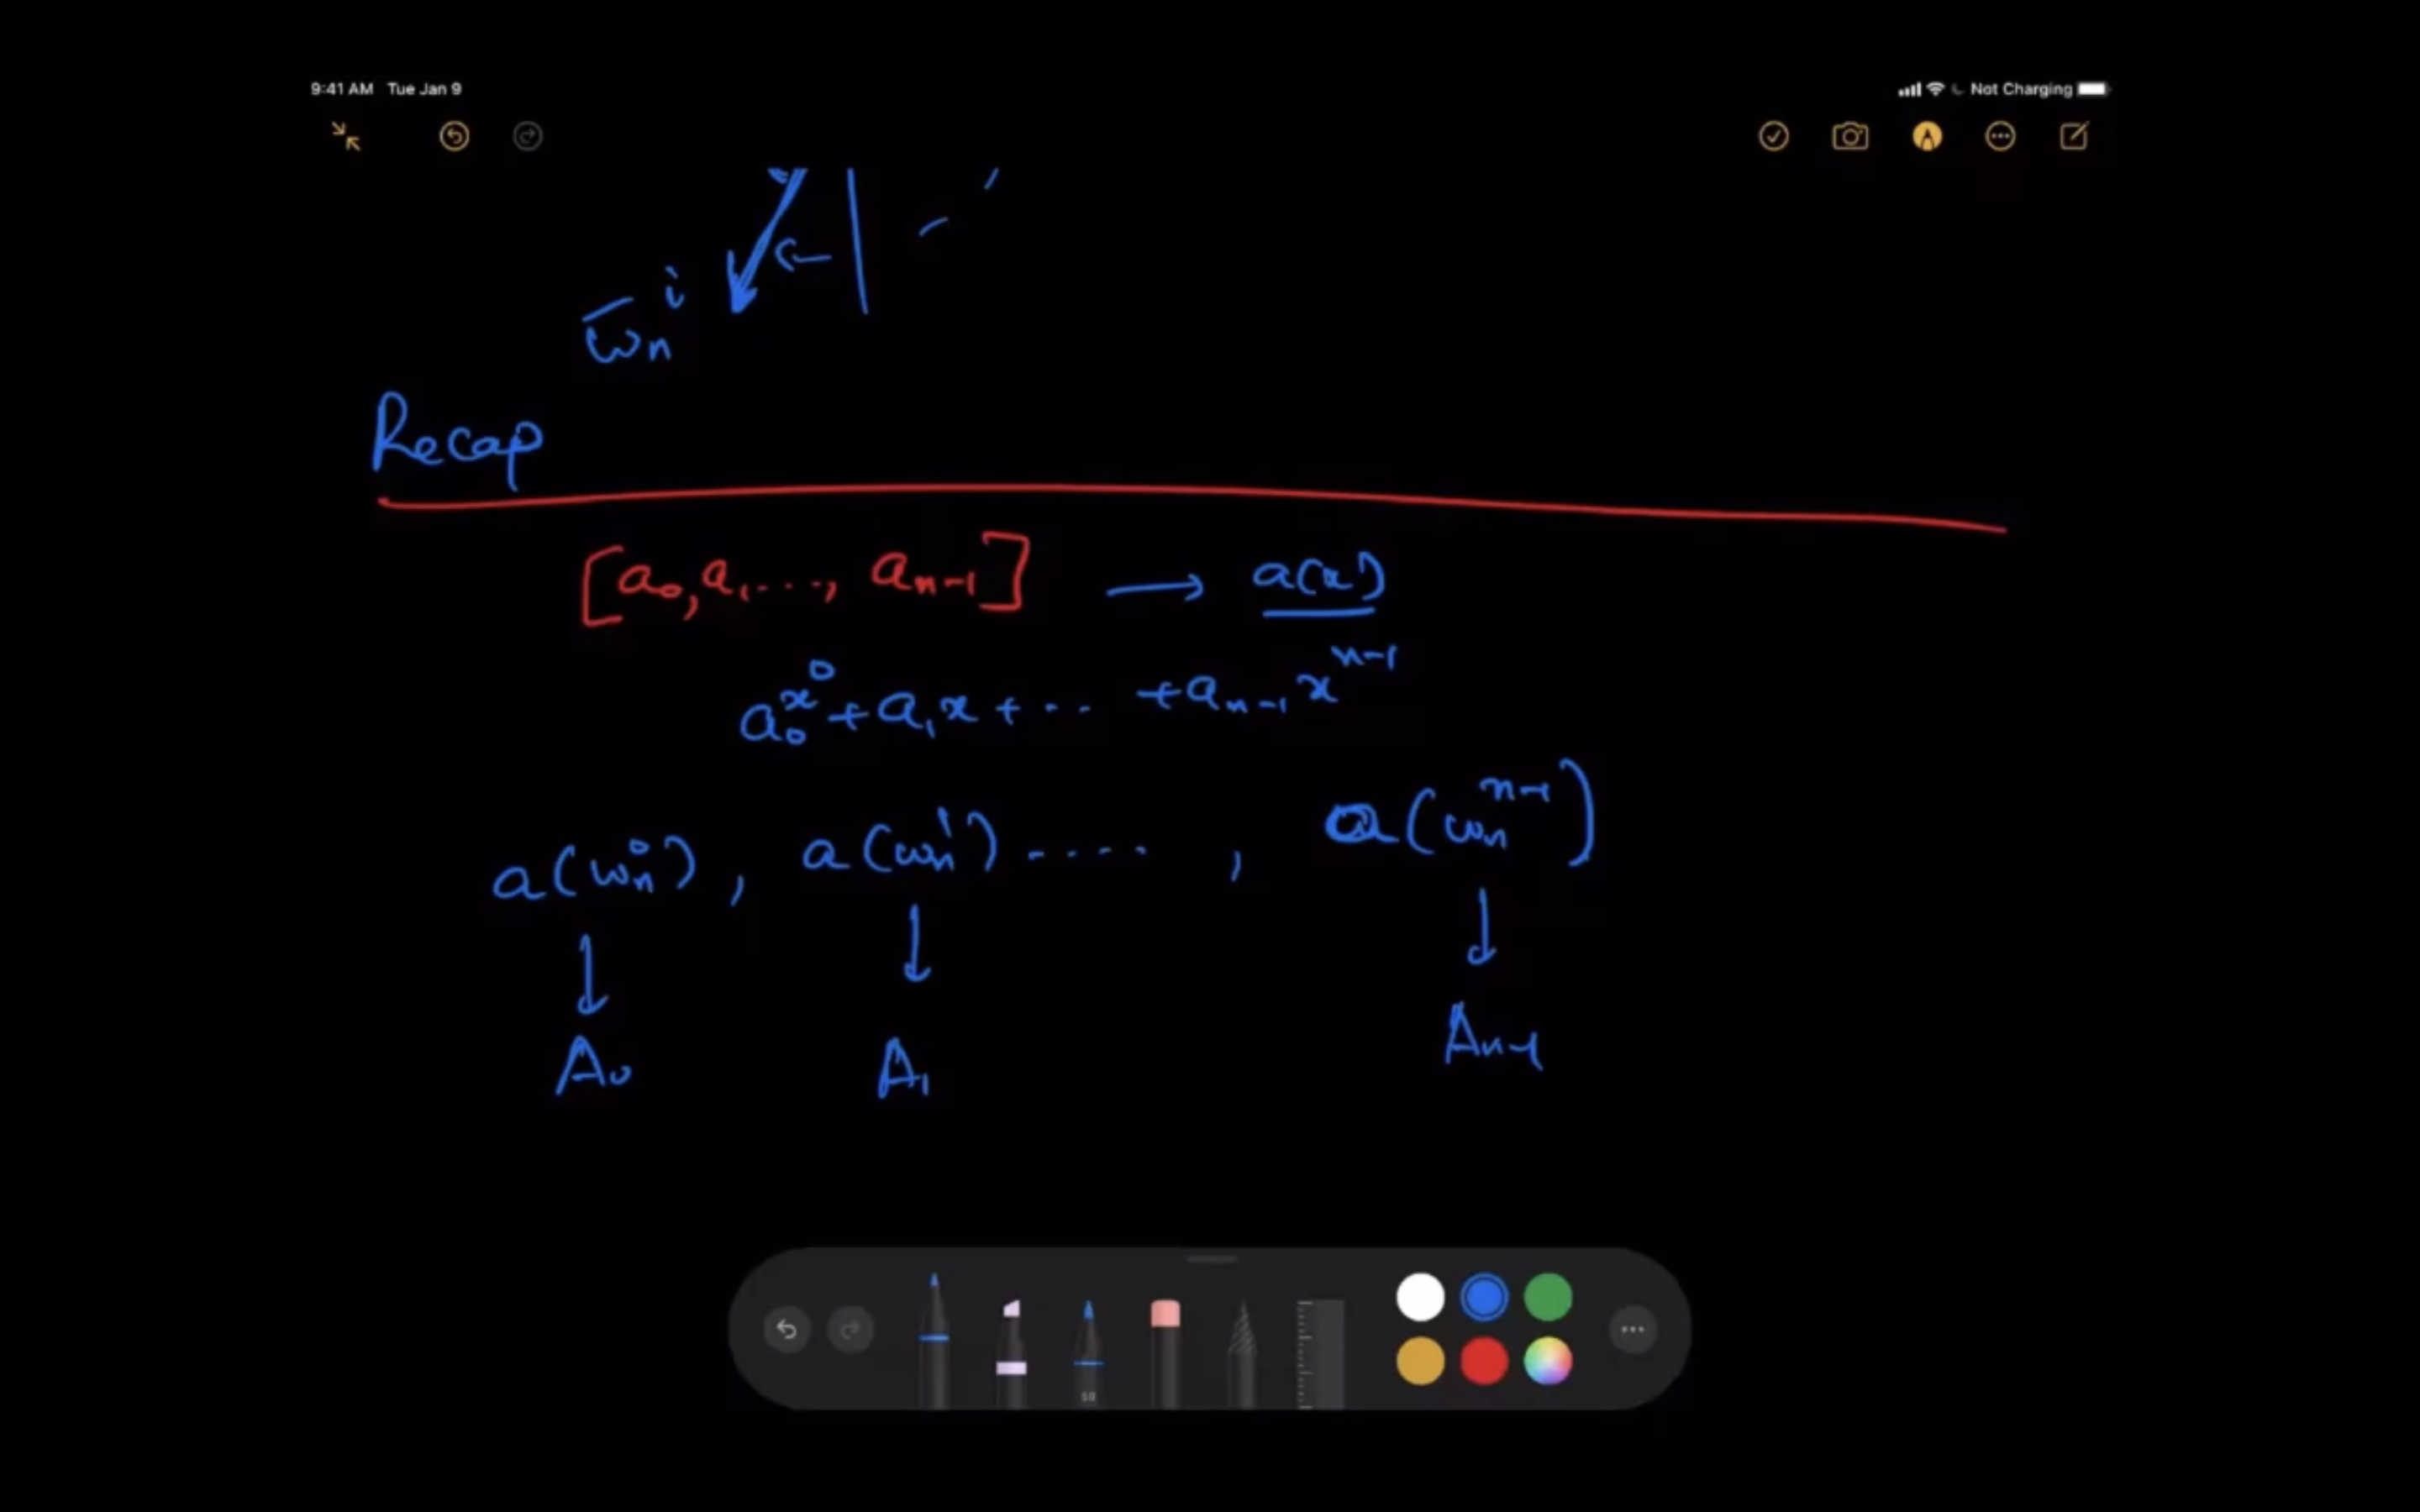 9:41 AM Tue Jan 9 Not Charging
ω̅ₙⁱ
Recap
[a₀, a₁ ...., aₙ₋₁] → a(x)
a₀x⁰ + a₁x + ... + aₙ₋₁xⁿ⁻¹
a(ωₙ⁰), a(ωₙ¹) ...., a(ωₙⁿ⁻¹)
↓ ↓ ↓
A₀ A₁ Aₙ₋₁
50